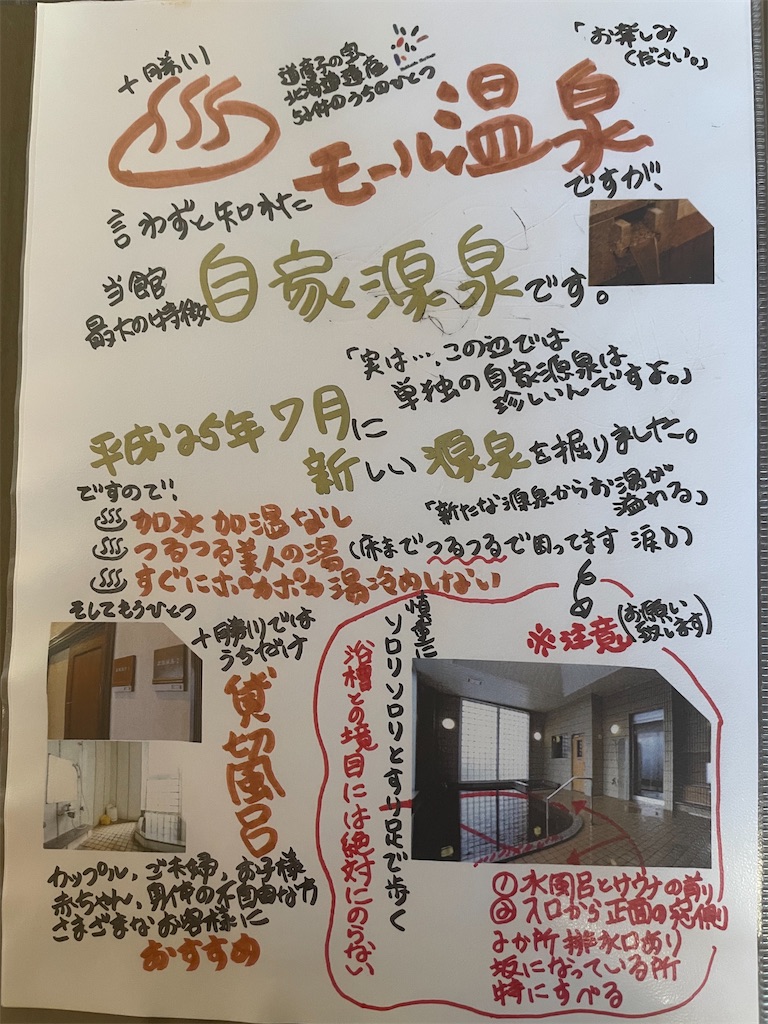 十勝川
道庁子の宝
北海道遺産
52件のうちのひとつ
「お楽しみ
ください。」
モール温泉
言わずと知れた
ですが、
当館
最大の特徴
自家源泉です。
「実は…、この辺では
単独の自家源泉は
珍しいんですよ。」
平成25年7月に
新しい源泉を掘りました。
ですので!
「新たな源泉からお湯が
溢れる」
加水加温なし
つるつる美人の湯
(床までつるつるで困ってます 涙)
すぐにポカポカ湯冷めしない
そしてもうひとつ
十勝川では
うちだけ
貸切風呂
カップル、ご夫婦、お子様
赤ちゃん、身体の不自由な方
さまざまなお客様に
おすすめ
※注意
(お願い
致します)
慎重に
ソロリソロリとすり足で歩く
浴槽との境目には絶対にのらない
①水風呂とサウナの前
②入口から正面の窓側
2か所排水口あり
坂になっている所
特にすべる